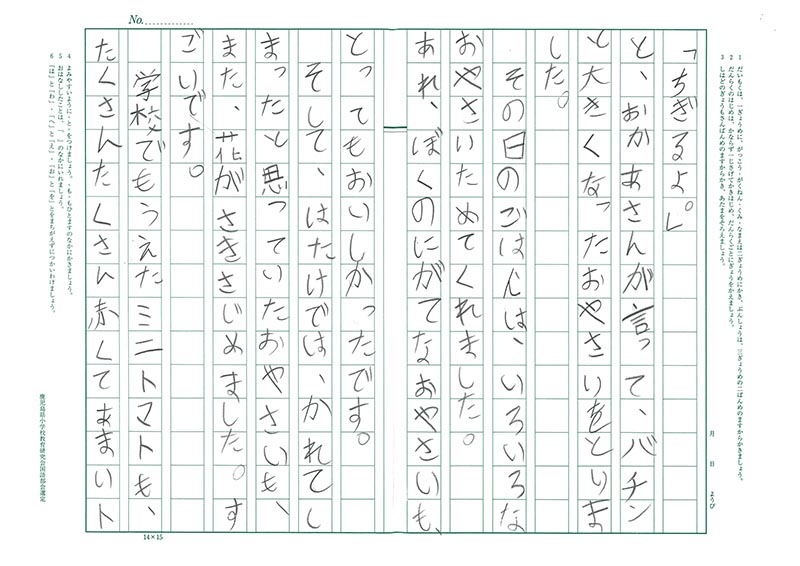 No.
1 だいもくは、一ぎょうめに、がっこう・がくねん・くみ・なまえは二ぎょうめにかき、ぶんしょうは、三ぎょうめの二ばんめのますからかきましょう。
2 だんらくのはじめは、かならず一じさげてかきはじめ、だんらくごとにぎょうをかえましょう。
3 しはどのぎょうもさんばんめのますからかき、あたまをそろえましょう。
月 日 ようび
「ちぎるよ。」
と、おかあさんが言って、バチン
と大きくなったおやさいをとりま
した。
その日のごはんは、いろいろな
おやさいためてくれました。
あれ、ぼくのにがてなおやさいも、
とってもおいしかったです。
そして、はたけでは、かれてし
まったと思っていたおやさいも、
また、花がさきさじめました。す
ごいです。
学校でもうえたミニトマトも、
たくさんたくさん赤くてあまいト
4 よみやすいように、と。をつけましょう。、も。もひとますのなかにかきましょう。
5 おはなししたことは、「 」のなかにいれましょう。
6 「は」と「わ」・「へ」と「え」・「お」と「を」とをまちがえずにつかいわけましょう。
鹿児島県小学校教育研究会国語部会選定
14×15